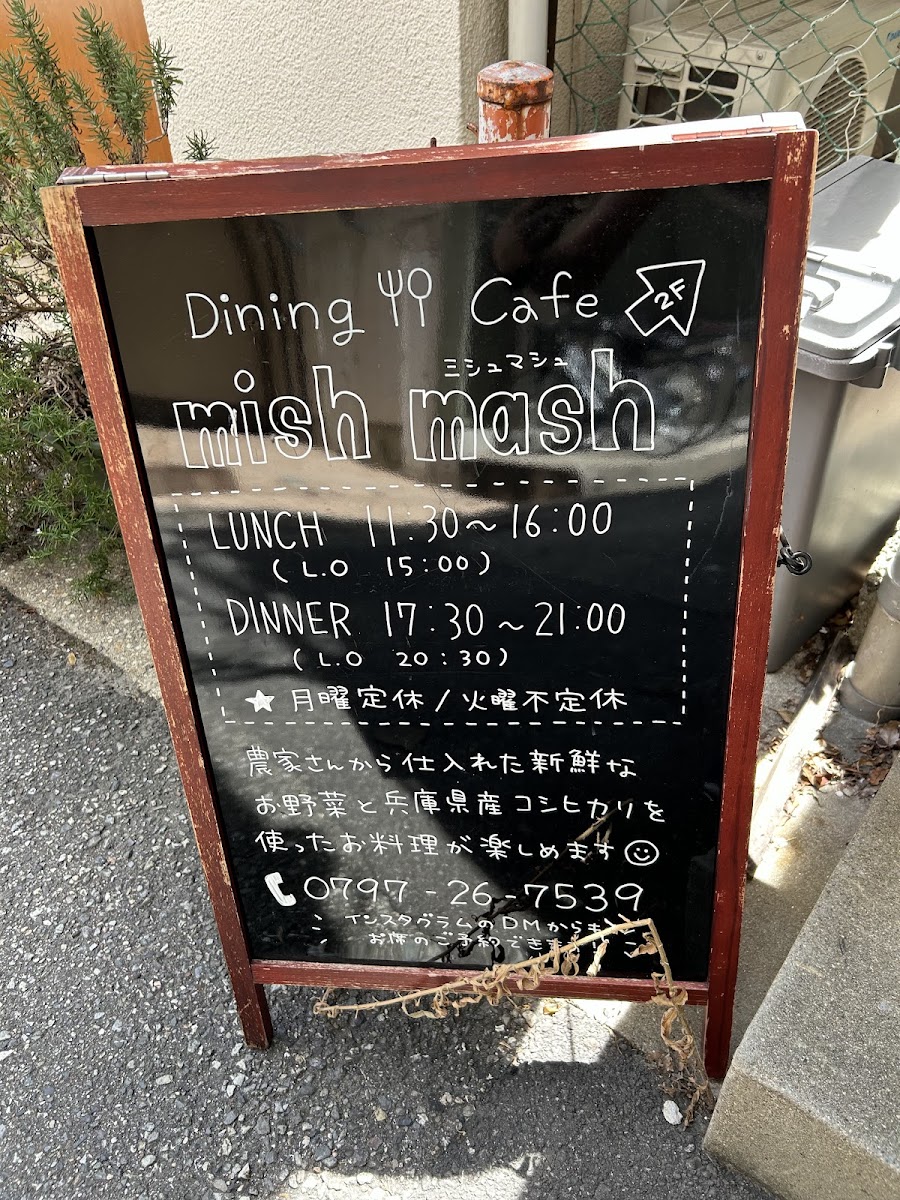 Dining Cafe 2F
ミシュマシュ
mish mash
LUNCH 11:30~16:00
(L.O 15:00)
DINNER 17:30~21:00
(L.O 20:30)
★月曜定休/火曜不定休
農家さんから仕入れた新鮮な
お野菜と兵庫県産コシヒカリを
使ったお料理が楽しめます
0797-26-7539
インスタグラムのDMからも
お席のご予約できます!!